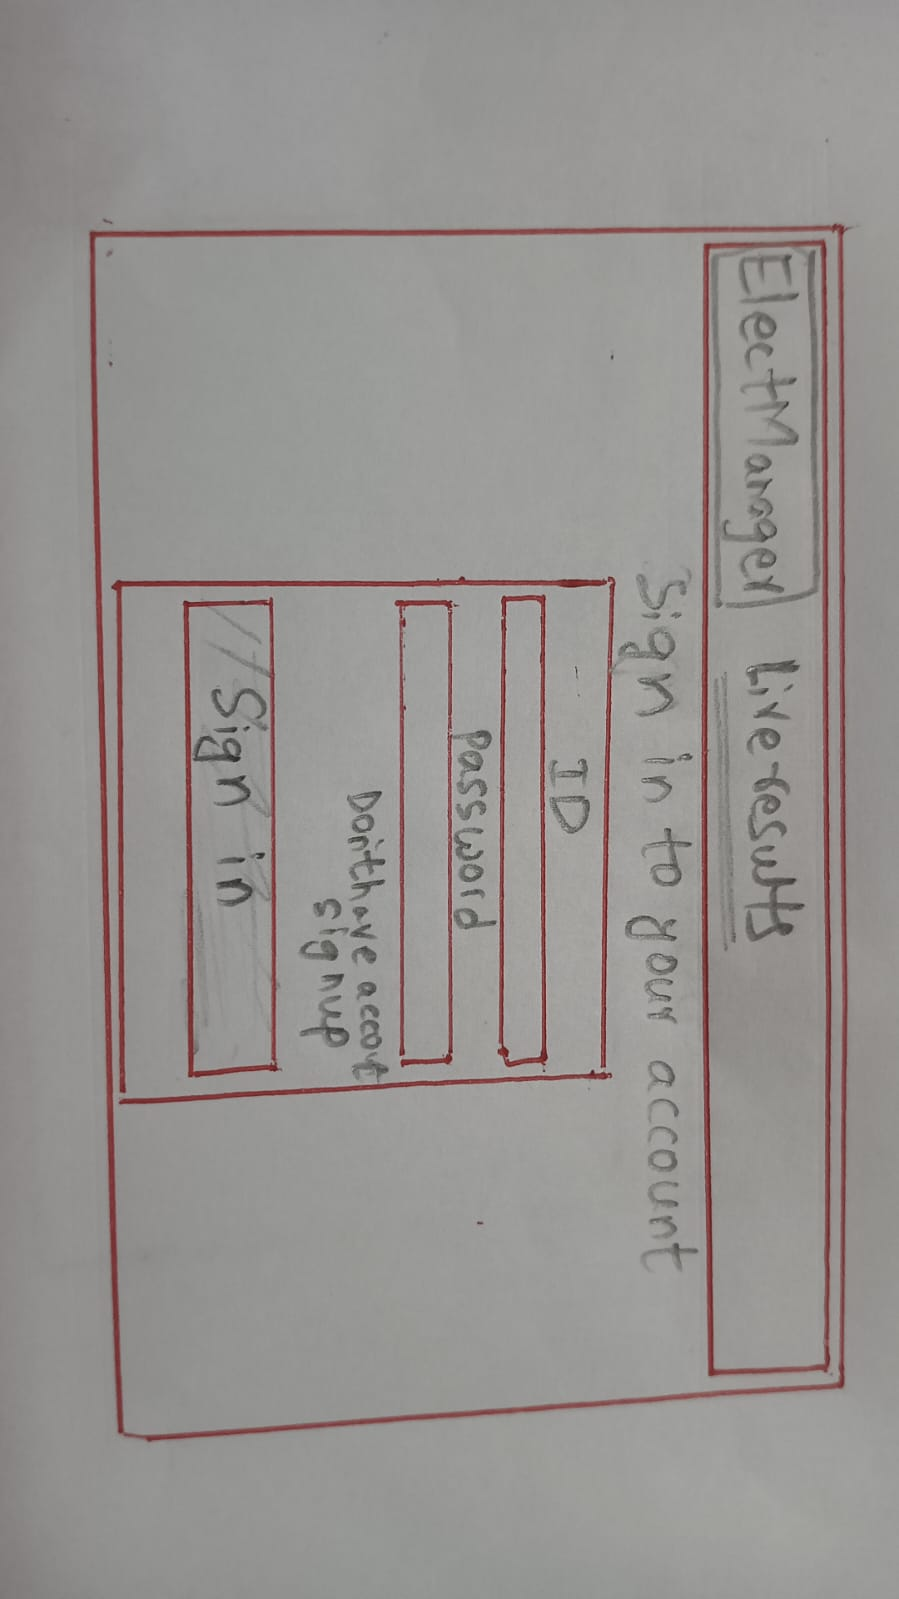 ElectManager Live-results
Sign in to your account
ID
Password
Don't have accout
signup
Sign in